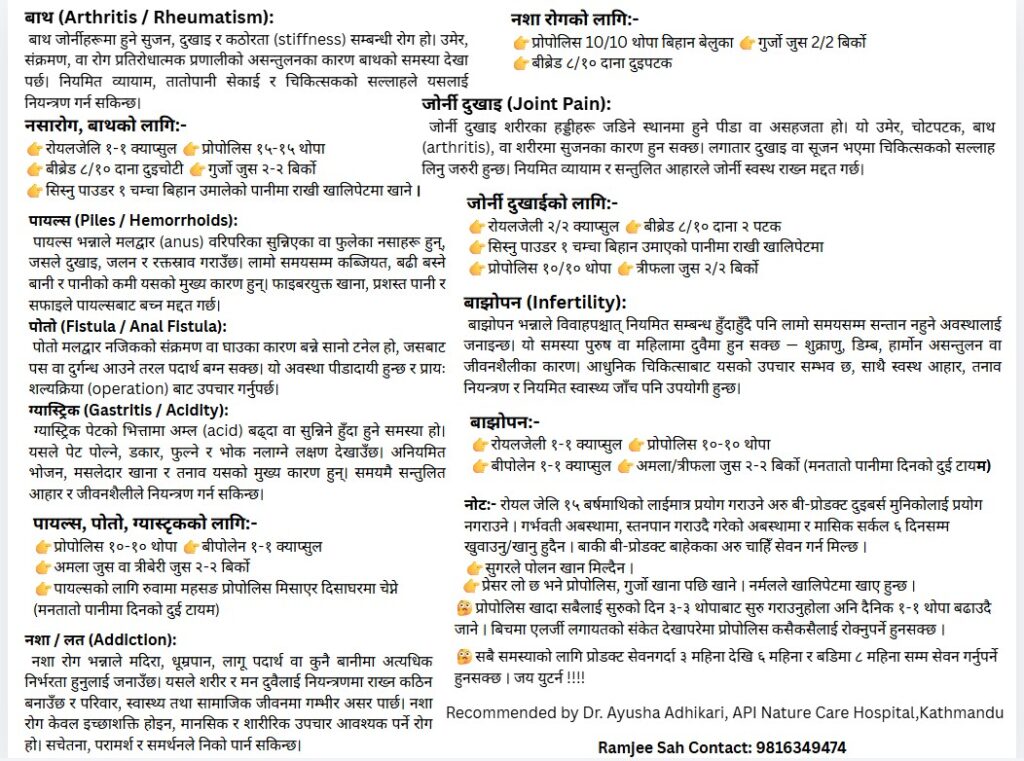 बाथ (Arthritis / Rheumatism):
बाथ जोर्नीहरूमा हुने सुजन, दुखाइ र कठोरता (stiffness) सम्बन्धी रोग हो। उमेर,
संक्रमण, वा रोग प्रतिरोधात्मक प्रणालीको असन्तुलनका कारण बाथको समस्या देखा
पर्छ। नियमित व्यायाम, तातोपानी सेकाई र चिकित्सकको सल्लाहले यसलाई
नियन्त्रण गर्न सकिन्छ।
नसारोग, बाथको लागि:-
👉रोयलजेलि १-१ क्याप्सुल 👉प्रोपोलिस १५-१५ थोपा
👉बीब्रेड ८/१० दाना दुइचोटी 👉गुर्जो जुस २-२ बिर्को
👉सिस्नु पाउडर १ चम्चा बिहान उमालेको पानीमा राखी खालिपेटमा खाने।
पायल्स (Piles / Hemorrhoids):
पायल्स भन्नाले मलद्वार (anus) वरिपरिका सुन्निएका वा फुलेका नसाहरू हुन्,
जसले दुखाइ, जलन र रक्तस्राव गराउँछ। लामो समयसम्म कब्जियत, बढी बस्ने
बानी र पानीको कमी यसको मुख्य कारण हुन्। फाइबरयुक्त खाना, प्रशस्त पानी र
सफाइले पायल्सबाट बच्न मद्दत गर्छ।
पोतो (Fistula / Anal Fistula):
पोतो मलद्वार नजिकको संक्रमण वा घाउका कारण बन्ने सानो टनेल हो, जसबाट
पस वा दुर्गन्ध आउने तरल पदार्थ बग्न सक्छ। यो अवस्था पीडादायी हुन्छ र प्रायः
शल्यक्रिया (operation) बाट उपचार गर्नुपर्छ।
ग्यास्ट्रिक (Gastritis / Acidity):
ग्यास्ट्रिक पेटको भित्तामा अम्ल (acid) बढ्दा वा सुन्निने हुँदा हुने समस्या हो।
यसले पेट पोल्ने, डकार, फुल्ने र भोक नलाग्ने लक्षण देखाउँछ। अनियमित
भोजन, मसलेदार खाना र तनाव यसको मुख्य कारण हुन्। समयमै सन्तुलित
आहार र जीवनशैलीले नियन्त्रण गर्न सकिन्छ।
पायल्स, पोतो, ग्यास्टृकको लागि:-
👉प्रोपोलिस १०-१० थोपा 👉बीपोलेन १-१ क्याप्सुल
👉अमला जुस वा त्रीबेरी जुस २-२ बिर्को
👉पायल्सको लागि रुवामा महसङ प्रोपोलिस मिसाएर दिसाघरमा चेप्ने
(मनतातो पानीमा दिनको दुई टायम)
नशा / लत (Addiction):
नशा रोग भन्नाले मदिरा, धूम्रपान, लागू पदार्थ वा कुनै बानीमा अत्यधिक
निर्भरता हुनुलाई जनाउँछ। यसले शरीर र मन दुवैलाई नियन्त्रणमा राख्न कठिन
बनाउँछ र परिवार, स्वास्थ्य तथा सामाजिक जीवनमा गम्भीर असर पार्छ। नशा
रोग केवल इच्छाशक्ति होइन, मानसिक र शारीरिक उपचार आवश्यक पर्ने रोग
हो। सचेतना, परामर्श र समर्थनले निको पार्न सकिन्छ।
नशा रोगको लागि:-
👉प्रोपोलिस 10/10 थोपा बिहान बेलुका 👉गुर्जो जुस 2/2 बिर्को
👉बीब्रेड ८/१० दाना दुइपटक
जोर्नी दुखाइ (Joint Pain):
जोर्नी दुखाइ शरीरका हड्डीहरू जडिने स्थानमा हुने पीडा वा असहजता हो। यो उमेर, चोटपटक, बाथ
(arthritis), वा शरीरमा सुजनका कारण हुन सक्छ। लगातार दुखाइ वा सूजन भएमा चिकित्सकको सल्लाह
लिनु जरुरी हुन्छ। नियमित व्यायाम र सन्तुलित आहारले जोर्नी स्वस्थ राख्न मद्दत गर्छ।
जोर्नी दुखाईको लागि:-
👉रोयलजेली २/२ क्याप्सुल 👉बीब्रेड ८/१० दाना २ पटक
👉सिस्नु पाउडर १ चम्चा बिहान उमाएको पानीमा राखी खालिपेटमा
👉प्रोपोलिस १०/१० थोपा 👉त्रीफला जुस २/२ बिर्को
बाझोपन (Infertility):
बाझोपन भन्नाले विवाहपश्चात् नियमित सम्बन्ध हुँदाहुँदै पनि लामो समयसम्म सन्तान नहुने अवस्थालाई
जनाइन्छ। यो समस्या पुरुष वा महिलामा दुवैमा हुन सक्छ — शुक्राणु, डिम्ब, हार्मोन असन्तुलन वा
जीवनशैलीका कारण। आधुनिक चिकित्साबाट यसको उपचार सम्भव छ, साथै स्वस्थ आहार, तनाव
नियन्त्रण र नियमित स्वास्थ्य जाँच पनि उपयोगी हुन्छ।
बाझोपन:-
👉रोयलजेली १-१ क्याप्सुल 👉प्रोपोलिस १०-१० थोपा
👉बीपोलेन १-१ क्याप्सुल 👉अमला/त्रीफला जुस २-२ बिर्को (मनतातो पानीमा दिनको दुई टायम)
नोट:- रोयल जेलि १५ बर्षमाथिको लाईमात्र प्रयोग गराउने अरु बी-प्रोडक्ट दुइबर्स मुनिकोलाई प्रयोग
नगराउने। गर्भवती अबस्थामा, स्तनपान गराउदै गरेको अबस्थामा र मासिक सर्कल ६ दिनसम्म
खुवाउनु/खानु हुदैन। बाकी बी-प्रोडक्ट बाहेकका अरु चाहिँ सेवन गर्न मिल्छ।
👉सुगरले पोलन खान मिल्दैन।
👉प्रेसर लो छ भने प्रोपोलिस, गुर्जो खाना पछि खाने। नर्मलले खालिपेटमा खाए हुन्छ।
🤔प्रोपोलिस खादा सबैलाई सुरुको दिन ३-३ थोपाबाट सुरु गराउनुहोला अनि दैनिक १-१ थोपा बढाउदै
जाने। बिचमा एलर्जी लगायतको संकेत देखापरेमा प्रोपोलिस कसैकसैलाई रोक्नुपर्ने हुनसक्छ।
🤔सबै समस्याको लागि प्रोडक्ट सेवनगर्दा ३ महिना देखि ६ महिना र बडिमा ८ महिना सम्म सेवन गर्नुपर्ने
हुनसक्छ। जय युटर्न !!!!
Recommended by Dr. Ayusha Adhikari, API Nature Care Hospital,Kathmandu
Ramjee Sah Contact: 9816349474